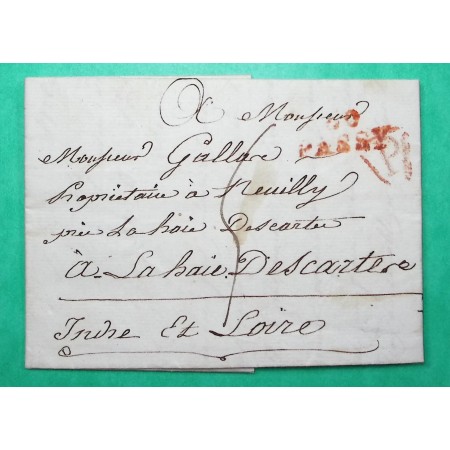 A Monsieur
60
PASSY
P
Monsieur Gallare
Propriétaire à Neuilly
près La haie Descartes
5
À La haie Descartes
Indre Et Loire